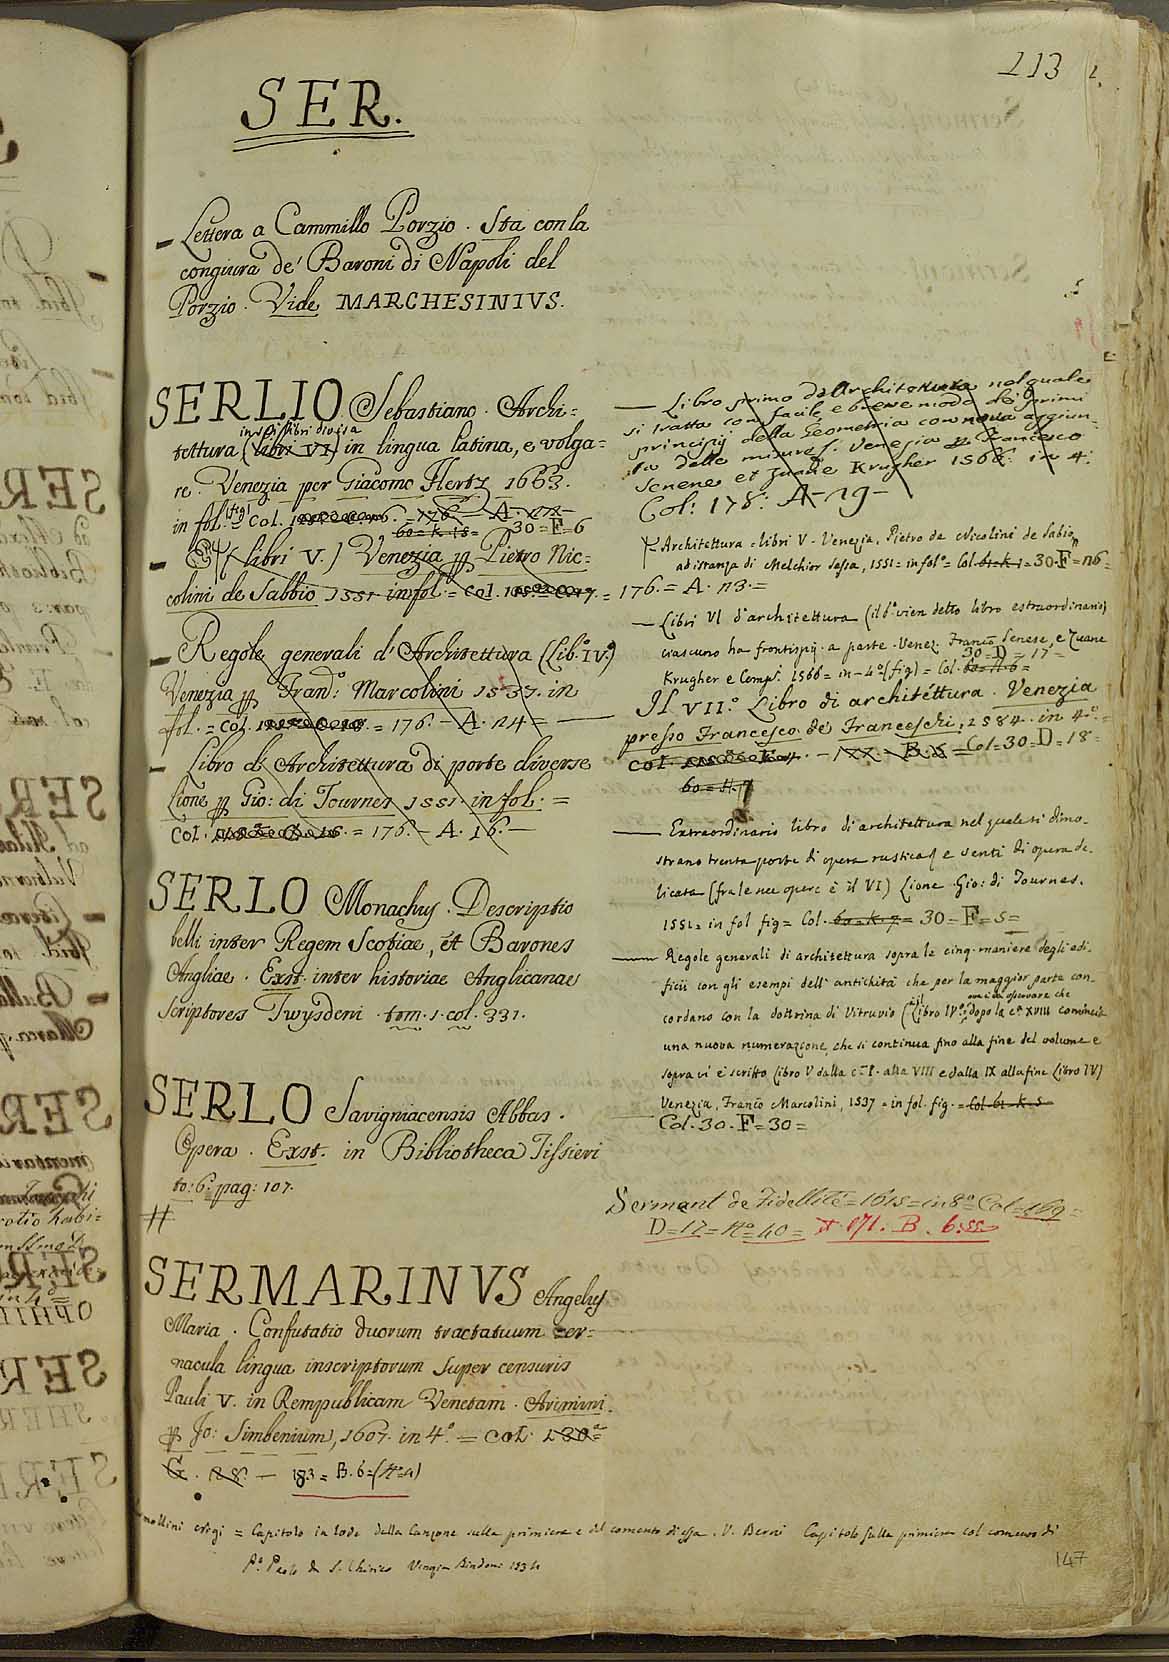 113
SER.
Lettera a Cammillo Porzio. Sta con la
congiura de' Baroni di Napoli del
Porzio. Vide MARCHESINIVS.
SERLIO Sebastiano. Archi=
in sei libri divisa
tettura (libri VI) in lingua latina, e volga=
re. Venezia per Giacomo Hertz 1663.
in fol. fig. Col. = 176. — A.
60=K=18= 30=F=6
(libri V.) Venezia per Pietro Nic=
colini de Sabbio 1551 in fol. = Col. = 176. = A. 13. =
Regole generali d'Architettura (Lib.o IV.o)
Venezia per Fran.o Marcolini 1537. in
fol. = Col. = 176. — A. 14 =
Libro di Architettura di porte diverse
Lione per Gio: di Tournes 1551 in fol. =
Col. = 176. — A. 16. —
SERLO Monachus. Descriptio
belli inter Regem Scotiae, et Barones
Angliae. Exst. inter historiae Anglicanae
scriptores Twysdeni tom. 1. col. 331.
SERLO Savigniacensis Abbas.
Opera. Exst. in Bibliotheca Tissieri
to: 6. pag: 107.
#
SERMARINVS Angelus
Maria. Confutatio duorum tractatuum ver=
nacula lingua inscriptorum super censuris
Pauli V. in Rempublicam Venetam. Arimini
per Jo: Simbenium, 1607. in 4.o = Col. 130=
G. 28. — 183= B. 6=(N.o 4)
— Libro primo d'Architettura nel quale
si tratta con facile e breve modo de primi
principij della Geometria con nova aggiun-
ta delle misure. Venezia per Francesco
Senene et Zuane Krugher 1566. in 4.
Col: 178: A- 19-
Architettura libri V. Venezia, Pietro de Nicolini de Sabio,
ad istanza di Melchior Sessa, 1551= in fol.o= Col. 61=K=1=30.F=n6=
— Libri VI d'architettura (il 6.o vien detto libro estraordinario)
ciascuno ha frontispij. a parte. Venez. Franco Senese, e Zuane
30=D=17=
Krugher e Comp. 1566= in-4.o (fig)= Col. 60=H.6=
Il VII.o Libro di architettura. Venezia
presso Francesco de' Franceschi, 1584. in 4.o=
Col. B. 8=Col=30=D=18=
60=H.7
— Extraordinario libro di architettura nel quale si dimo-
strano trenta porte di opera rustica e venti di opera de-
licata (fra le sue opere è il VI) Lione. Gio: di Tournes.
1551= in fol fig= Col. 60=K.7= 30=F=5=
— Regole generali di architettura sopra le cinq. maniere degli edi-
ficii con gli esempi dell'antichità che per la maggior parte con-
cordano con la dottrina di Vitruvio (Libro IV.o; dopo la c.a XVIII comincia
ove è da osservare che
una nuova numerazione che si continua fino alla fine del volume e
sopra vi è scritto libro V dalla c. I. alla VIII e dalla IX alla fine Libro IV)
Venezia, Franco Marcolini, 1537= in fol. fig.= Col. 61.K.5
Col. 30. F=30=
Sermant de Fidellité=1615=in 8.o=Col=169=
D=17=N.o=40= 171. B. 6.
= Capitolo in lode della Canzone sulla primiera e del comento di essa. V. Berni Capitolo sulla primiera col comento di
P.o Paolo da S. Chirico Venezia Bindoni 1534
147